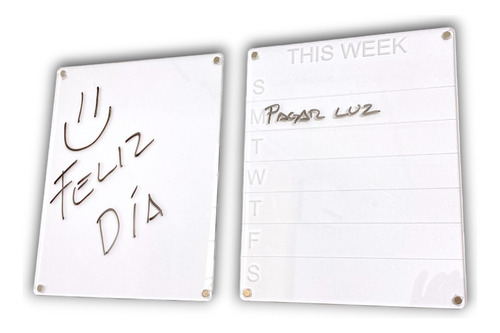 FELIZ
DÍA
THIS WEEK
S
M PAGAR LUZ
T
W
T
F
S